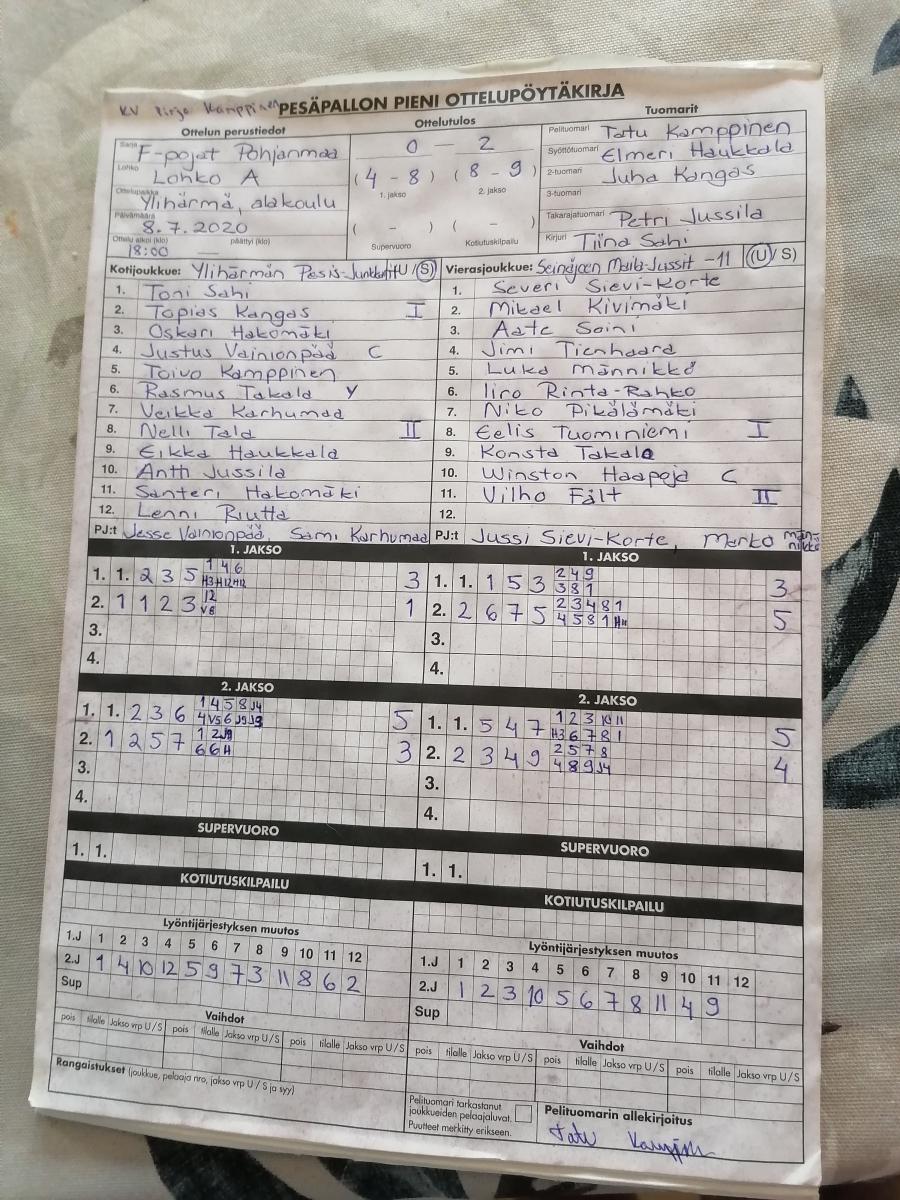 KV Pirjo Kamppinen
PESÄPALLON PIENI OTTELUPÖYTÄKIRJA
Ottelun perustiedot
Sarja F-pojat Pohjanmaa
Lohko Lohko A
Ottelupaikka Ylihärmä, alakoulu
Päivämäärä 8.7.2020
Ottelu alkoi (klo) 18:00 päättyi (klo) —
Ottelutulos
0 – 2
(4 – 8) (8 – 9)
1. jakso 2. jakso
( – ) ( – )
Supervuoro Kotiutuskilpailu
Tuomarit
Pelituomari Tatu Kamppinen
Syöttötuomari Elmeri Haukkala
2-tuomari Juha Kangas
3-tuomari
Takarajatuomari Petri Jussila
Kirjuri Tiina Sahi
Kotijoukkue: Ylihärmän Pesis-Junkkarit (U/S)
1. Toni Sahi
2. Topias Kangas I
3. Oskari Hakomäki
4. Justus Vainionpää C
5. Toivo Kamppinen
6. Rasmus Takala Y
7. Veikka Karhumaa
8. Nelli Tala II
9. Eikka Haukkala
10. Antti Jussila
11. Santeri Hakomäki
12. Lenni Riutta
PJ:t Jesse Vainionpää, Sami Karhumaa
Vierasjoukkue: Seinäjoen Maila-Jussit -11 (U/S)
1. Severi Sievi-Korte
2. Mikael Kivimäki
3. Aatc Soini
4. Jimi Tienhaara
5. Luka Männikkö
6. Iiro Rinta-Rahko
7. Niko Pikälämäki
8. Eelis Tuominiemi I
9. Konsta Takala
10. Winston Haapoja C
11. Vilho Fält II
12.
PJ:t Jussi Sievi-Korte, Marko Männikkö
1. JAKSO
1. 1. 2 3 5 1 4 6 3
H3 H12 H12
2. 1 1 2 3 12 1
V8
3.
4.
1. JAKSO
1. 1. 1 5 3 2 4 9 3
3 8 1
2. 2 6 7 5 2 3 4 8 1 5
4 5 8 1 H11
3.
4.
2. JAKSO
1. 1. 2 3 6 1 4 5 8 J4 5
4 V5 6 J9 J3
2. 1 2 5 7 1 2 J9 3
6 6 H
3.
4.
2. JAKSO
1. 1. 5 4 7 1 2 3 10 11 5
H3 6 7 8 1
2. 2 3 4 9 2 5 7 8 4
4 8 9 J4
3.
4.
SUPERVUORO
1. 1.
SUPERVUORO
1. 1.
KOTIUTUSKILPAILU
KOTIUTUSKILPAILU
Lyöntijärjestyksen muutos
1.J 1 2 3 4 5 6 7 8 9 10 11 12
2.J 1 4 10 12 5 9 7 3 11 8 6 2
Sup
Lyöntijärjestyksen muutos
1.J 1 2 3 4 5 6 7 8 9 10 11 12
2.J 1 2 3 10 5 6 7 8 11 4 9
Sup
Vaihdot
pois tilalle Jakso vrp U/S pois tilalle Jakso vrp U/S pois tilalle Jakso vrp U/S
Vaihdot
pois tilalle Jakso vrp U/S pois tilalle Jakso vrp U/S pois tilalle Jakso vrp U/S
Rangaistukset (joukkue, pelaaja nro, jakso vrp U / S ja syy)
Pelituomari tarkastanut
joukkueiden pelaajaluvat.
Puutteet merkitty erikseen.
Pelituomarin allekirjoitus
Tatu